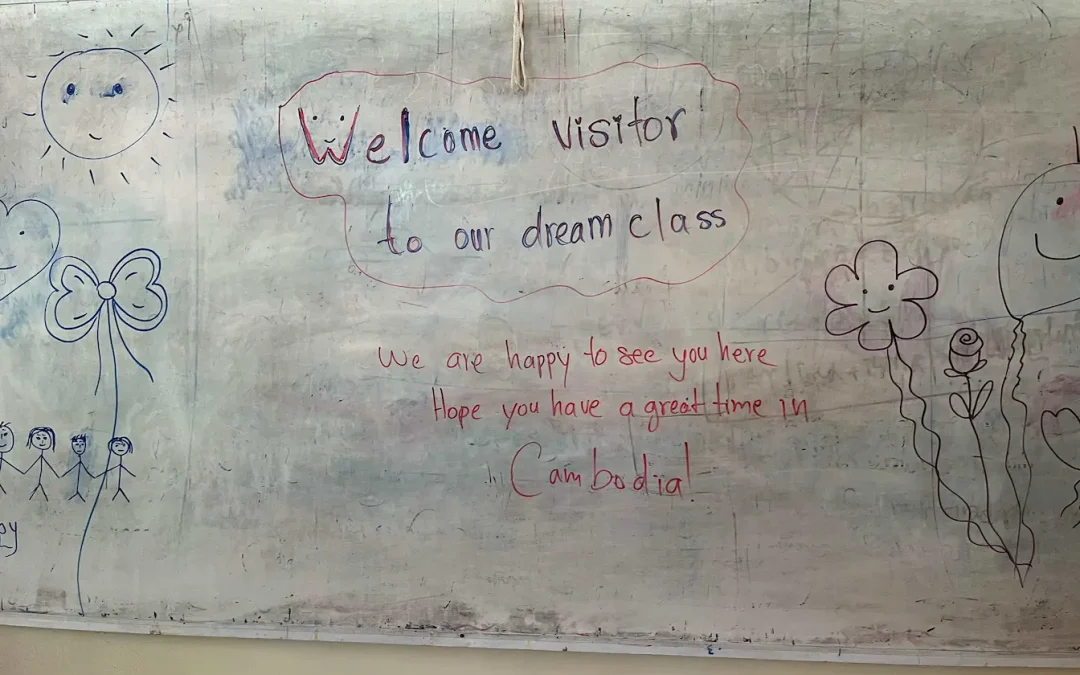 Welcome visitor!
to our dream class
We are happy to see you here
Hope you have a great time in
Cambodia!